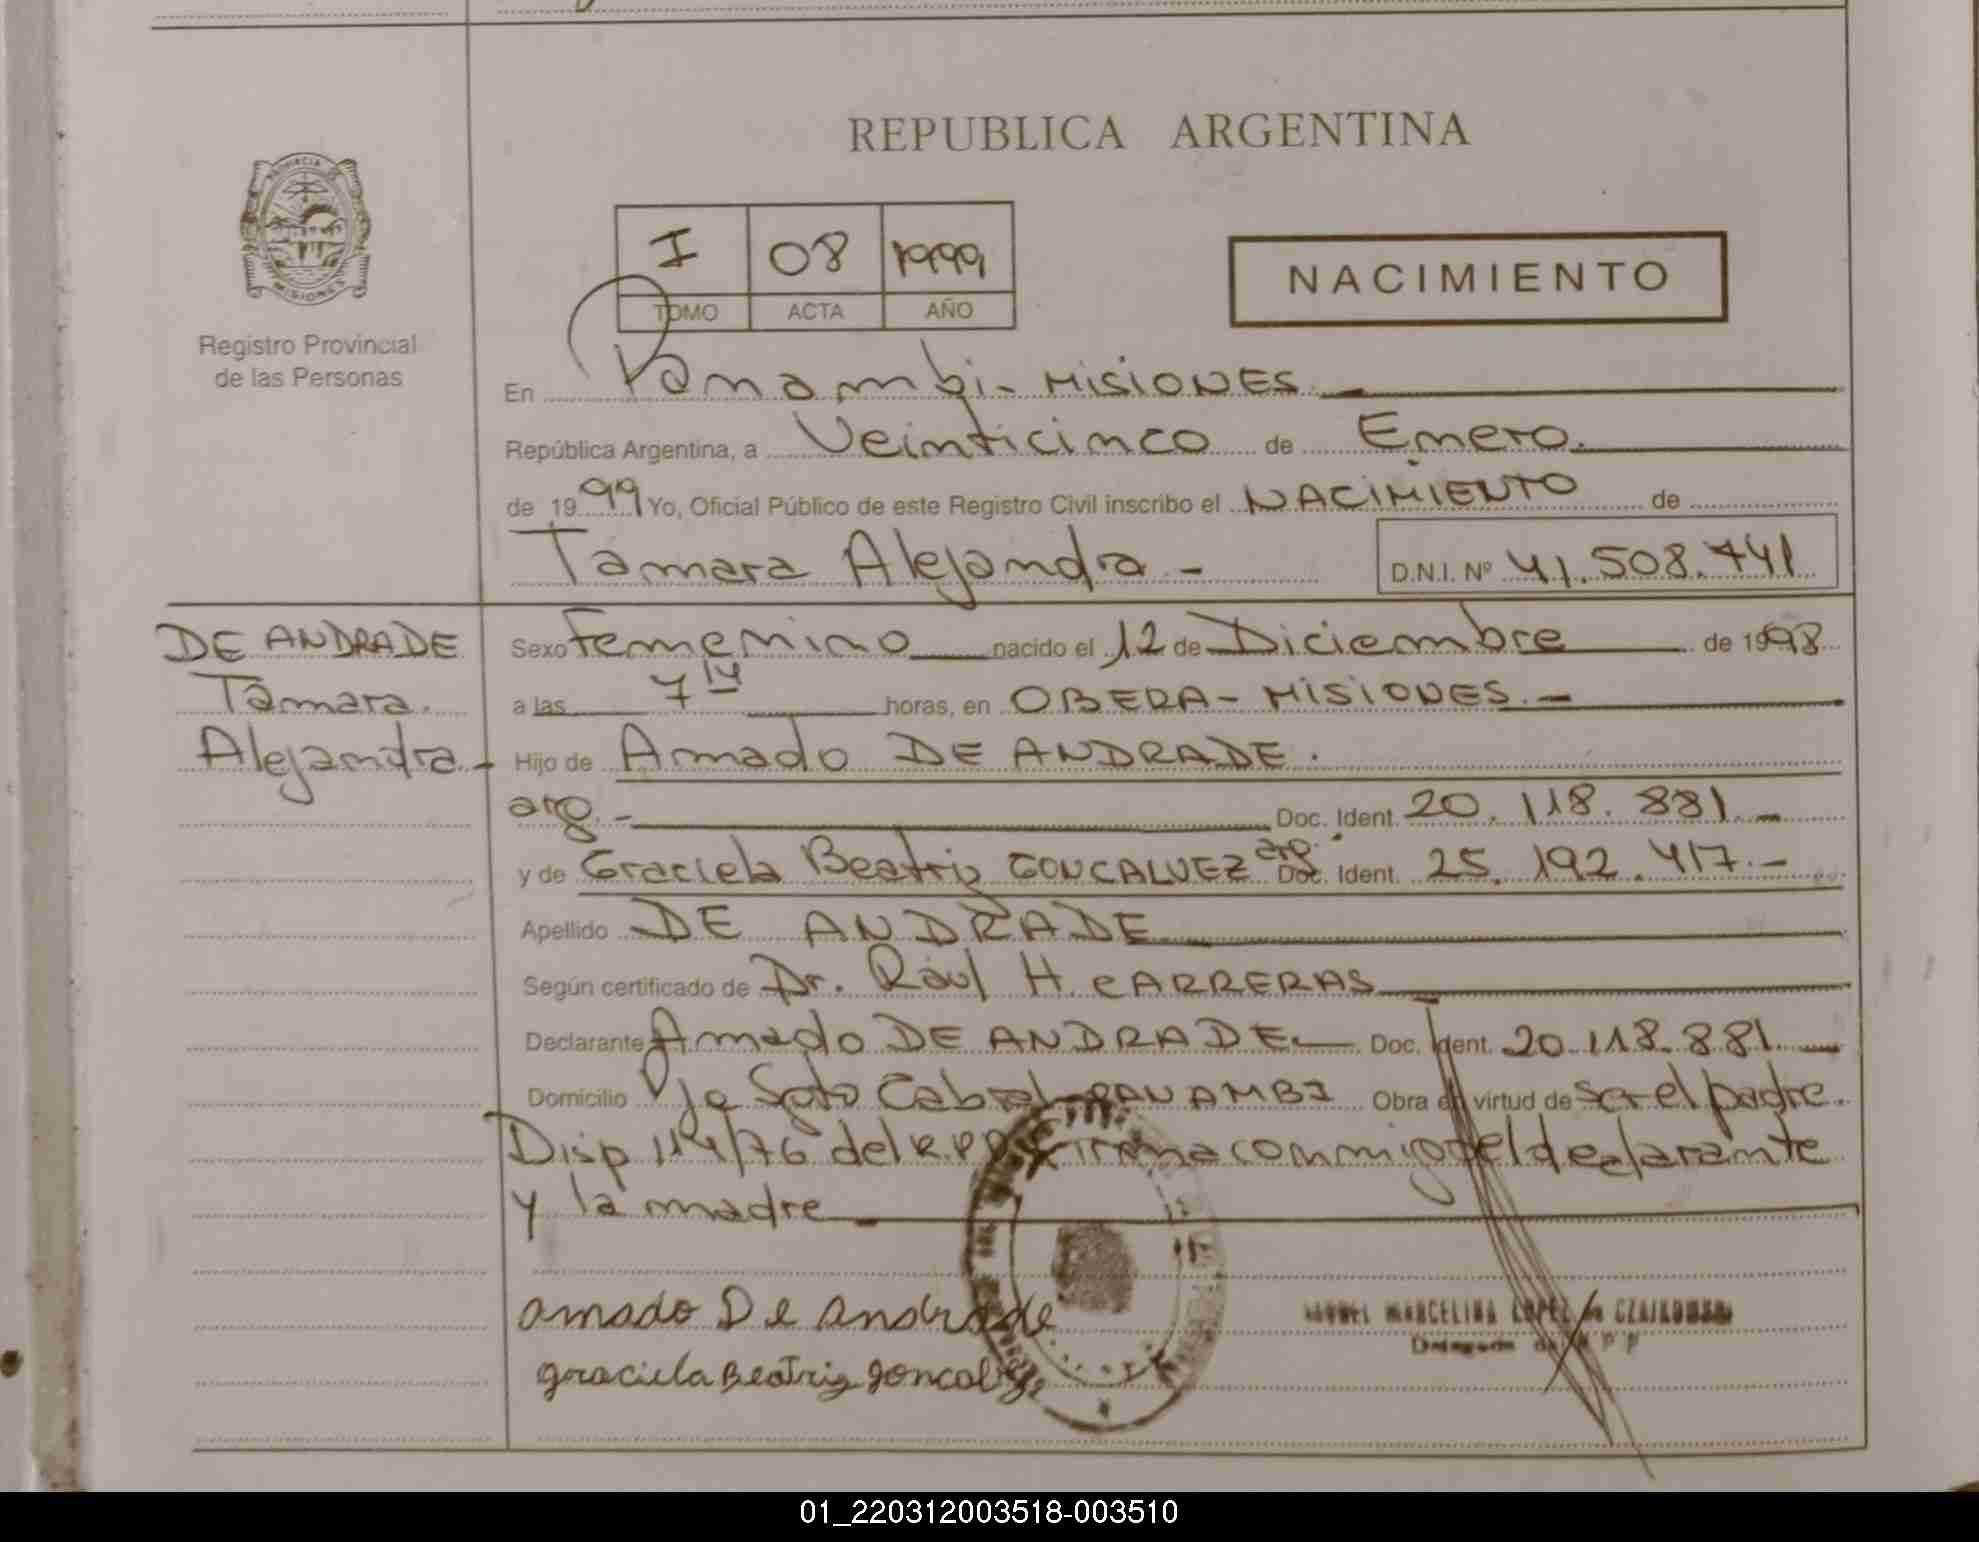 REPUBLICA ARGENTINA
PROVINCIA
MISIONES
Registro Provincial
de las Personas
I 08 1999
TOMO ACTA AÑO
NACIMIENTO
En Panambi - MISIONES. -
República Argentina, a Veinticinco de Enero.
de 1999 Yo, Oficial Público de este Registro Civil inscribo el NACIMIENTO de
Tamara Alejandra - D.N.I. Nº 41.508.441
DE ANDRADE
Tamara.
Alejandra -
Sexo Femenino nacido el 12 de Diciembre de 1998
a las 7 14 horas, en OBERA - MISIONES. -
Hijo de Amado DE ANDRADE.
arg. - Doc. Ident. 20.118.881. -
y de Graciela Beatriz GONCALVEZ arg. Doc. Ident. 25.192.417. -
Apellido DE ANDRADE
Según certificado de Dr. Raul H. CARRERAS
Declarante Amado DE ANDRADE Doc. Ident. 20.118.881. -
Domicilio Pje Soto Cabral PANAMBI Obra en virtud de ser el padre.
Disp 114/76 del R.P.P. Firma conmigo el declarante
y la madre -
amado De andrade
graciela Beatriz
MARCELINA LOPEZ de
01_220312003518-003510